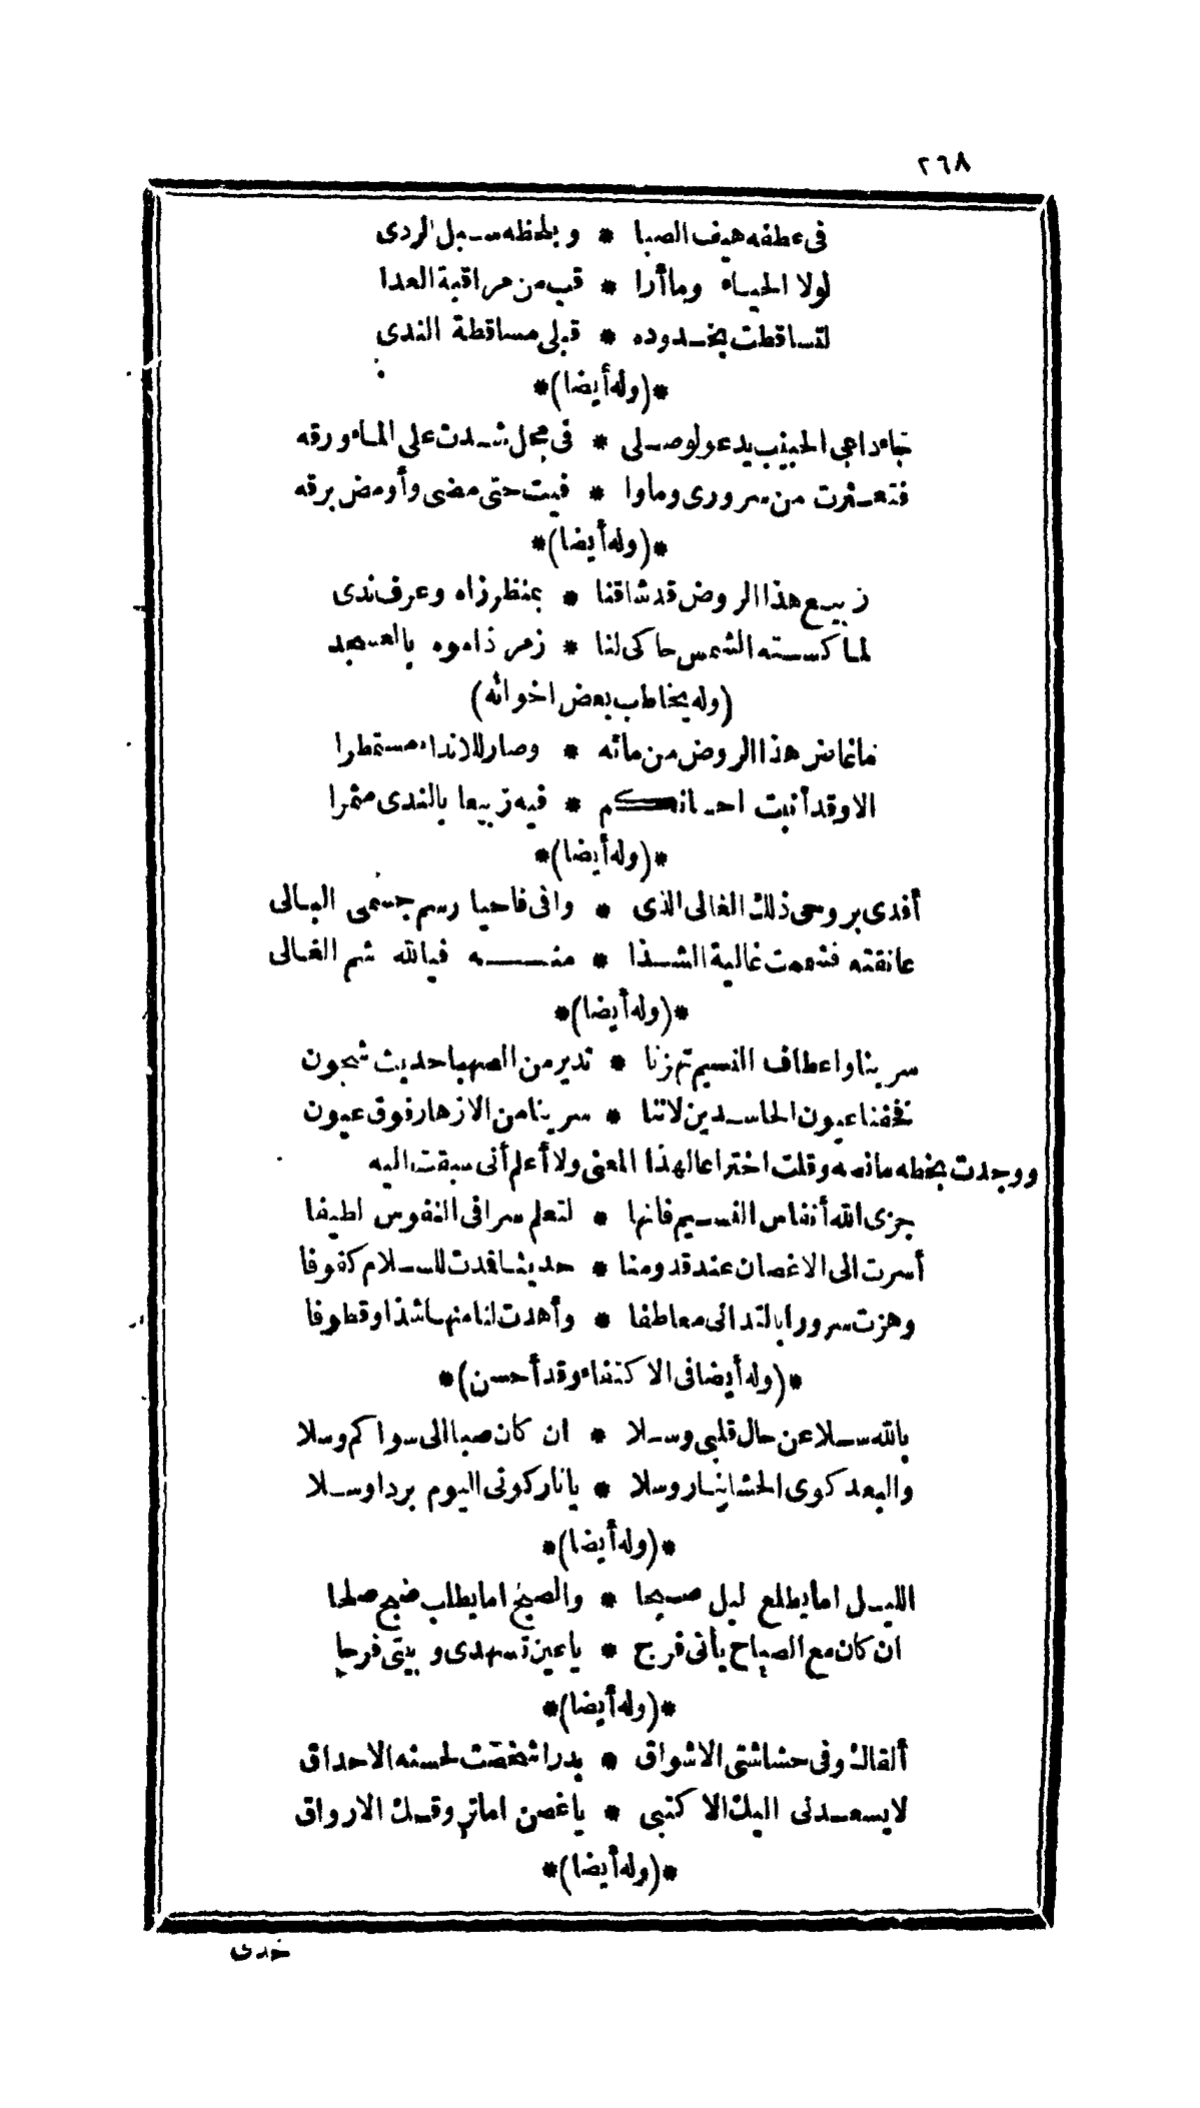 ٢٦٨
فى عطفه هيف الصبا * وبلحظه سبل الردى
لولا الحياء وما أرا * قب من مراقبة العدا
لتساقطت بخدوده * قبلى مساقطة الندى
*(وله أيضا)*
جاء داعى الحبيب يدعو لوصلى * فى محل شدت على الماء ورقه
فتعثرت من سرورى وماوا * فيت حتى مضى وأومض برقه
*(وله أيضا)*
زبيع هذا الروض قد شاقنا * بمنظر زاه وعرف ندى
لما كسته الشمس حاكى لنا * زمرذا موه بالعسجد
(وله يخاطب بعض اخوانه)
ماغاض هذا الروض من مائه * وصار للانداء مستمطرا
الا وقد أنبت احسانكم * فيه زبيعا بالندى مثمرا
*(وله أيضا)*
أفدى بروحى ذلك الغالى الذى * وافى فاحيا رسم جسمى البالى
عانقته فشممت غالية الشذا * منه فيالله شم الغالى
*(وله أيضا)*
سرينا واعطاف النسيم تهزنا * تدير من الصهبا حديث شجون
تخفنا عيون الحاسدين لاننا * سرينا من الازهار فوق عيون
ووجدت بخطه مانصه وقلت اختراعا لهذا المعنى ولا أعلم أنى سبقت اليه
جزى الله أنفاس النسيم فانها * لتعلم سرا فى النفوس لطيفا
أسرت الى الاغصان عند قدومنا * حديثا فدت للسلام كفوفا
وهزت سرورا بالتدانى معاطفا * وأهدت لنا منها شذا وقطوفا
*(وله أيضا فى الاكتفاء وقد أحسن)*
بالله سلا عن حال قلبى وسلا * ان كان صبا الى سواكم وسلا
والبعد كوى الحشا بنار وسلا * يانار كونى اليوم بردا وسلا
*(وله أيضا)*
الليل اما يطلع ليل صبحا * والصبح اما يطلب ضبح صلحا
ان كان مع الصباح يأتى فرج * ياعين تسهدى وبيتى فرحا
*(وله أيضا)*
ألقاك وفى حشاشتى الاشواق * بدرا شخصت لحسنه الاحداق
لا يسعدنى اليك الا كتبى * ياغصن اما تروقك الاوراق
*(وله أيضا)*
خدى